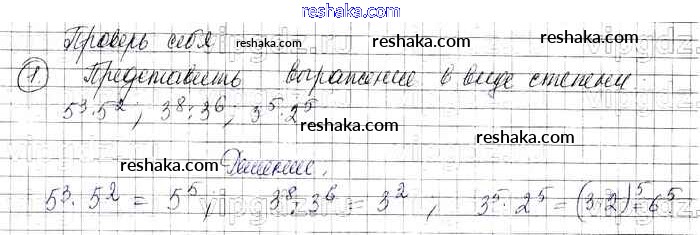 reshaka.com
Проверь себя reshaka.com reshaka.com
1. Представить выражение в виде степени.
5³·5², 3⁸:3⁶, 3⁵·2⁵
reshaka.com reshaka.com
reshaka.com Решение. reshaka.com
5³·5² = 5⁵, 3⁸:3⁶ = 3², 3⁵·2⁵=(3·2)⁵=6⁵
reshaka.com